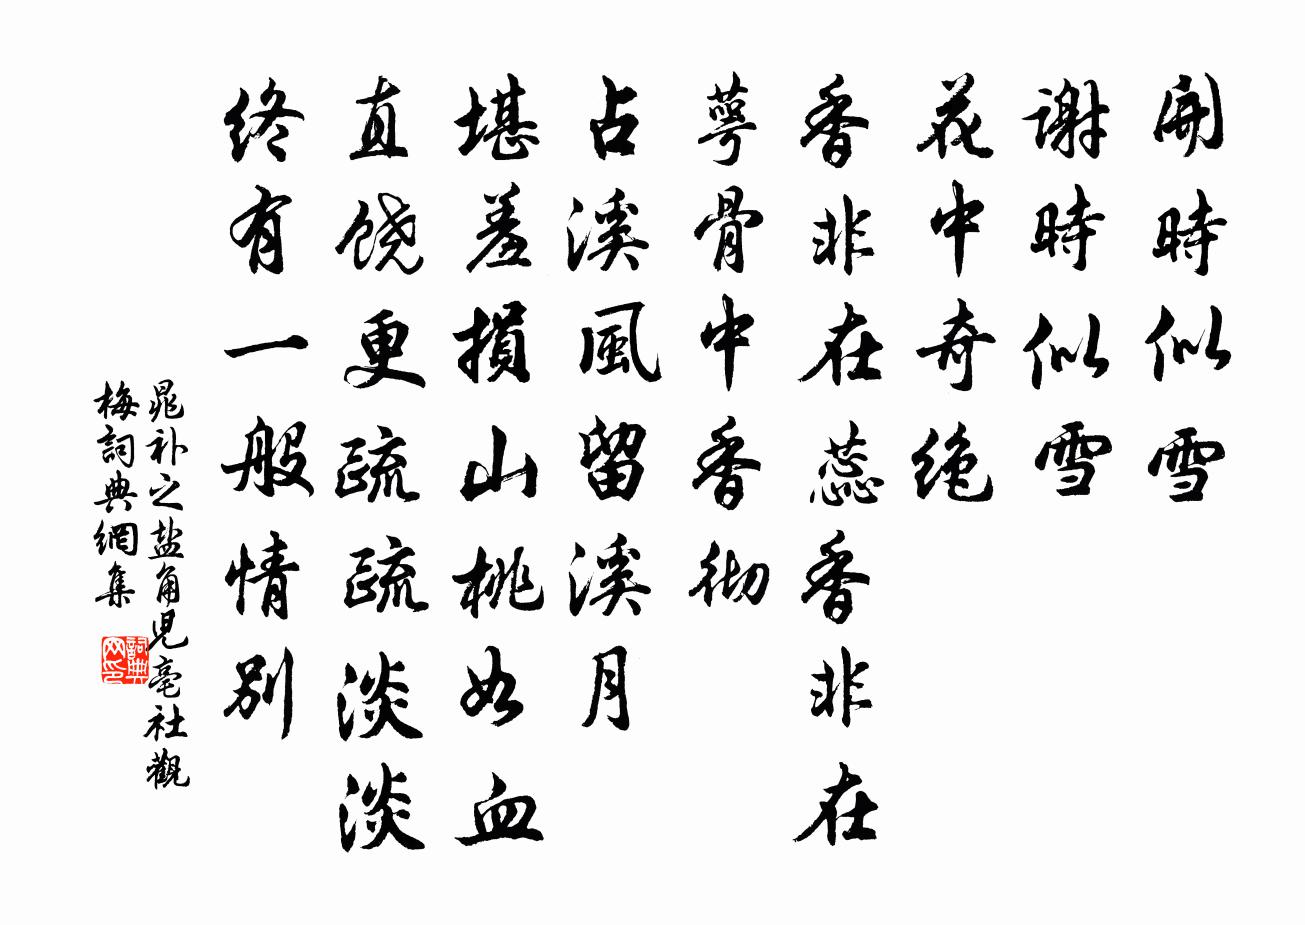 開時似雪
謝時似雪
花中奇绝
香非在蕊香非在
萼骨中香彻
占溪風留溪月
堪羞損山桃如血
直饶更疏疏淡淡
终有一般情別
晁补之盐角児亳社觀
梅詞典網集
詞典
网印